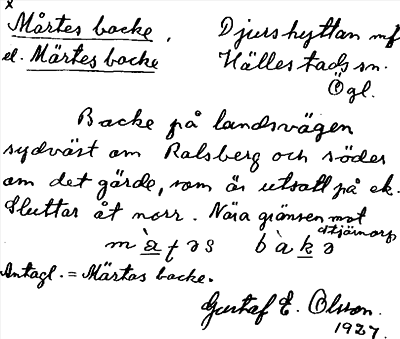 x
Mårtes backe, Djurshyttan mf
el. Märtes backe Hällestads sn.
Ögl.
Backe på landsvägen
sydväst om Ralsberg och söder
om det gärde, som är utsatt på ek.
Sluttar åt norr. Nära gränsen mot
Stjärnorp
Antagl. = Märtas backe.
Gustaf E. Olsson.
1927.